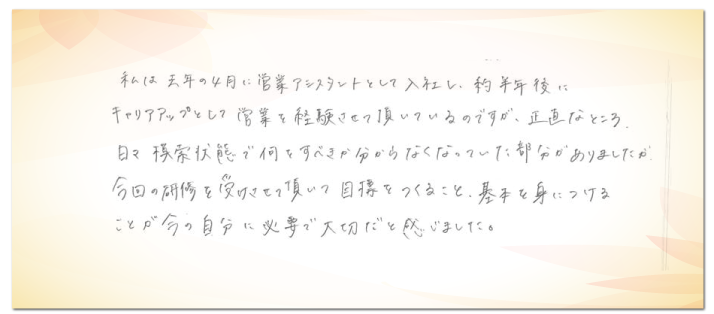 私は去年の4月に営業アシスタントとして入社し、約半年後に
キャリアアップとして営業を経験させて頂いているのですが、正直なところ、
日々模索状態で何をすべきか分からなくなっていた部分がありましたが
今回の研修を受けさせて頂いて目標をつくること、基本を身につける
ことが今の自分に必要で大切だと感じました。